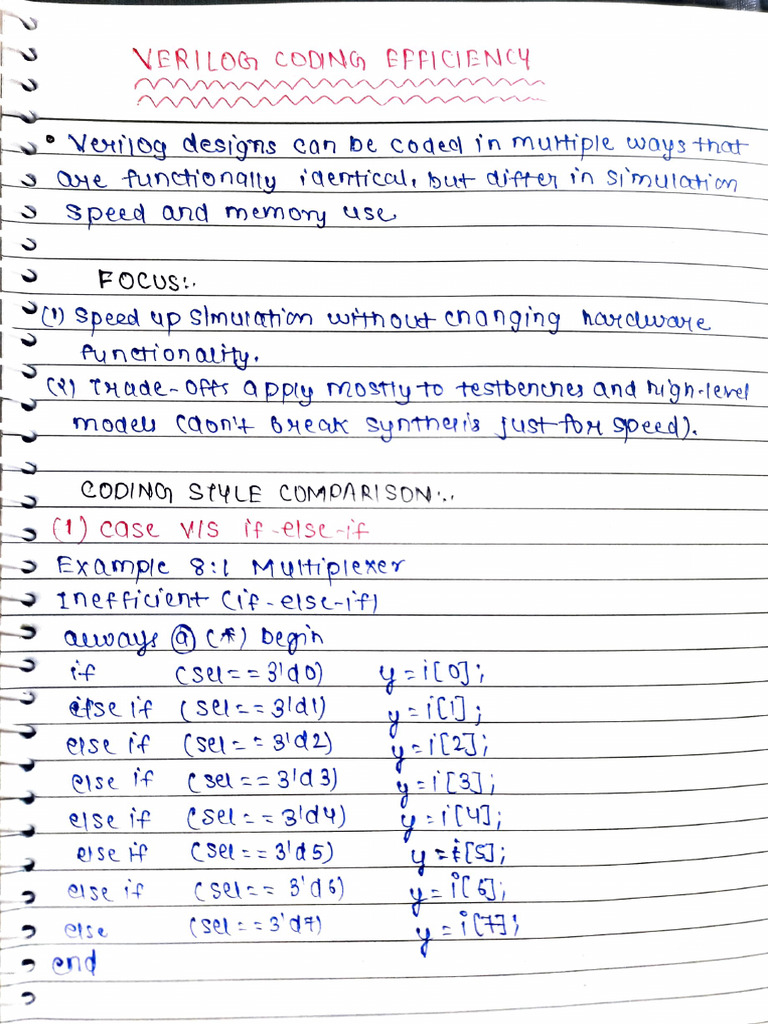 VERILOG CODING EFFICIENCY
• Verilog designs can be coded in multiple ways that
are functionally identical, but differ in simulation
speed and memory use
FOCUS:.
(1) Speed up simulation without changing hardware
functionality.
(2) Trade-offs apply mostly to testbenches and high-level
models (don't break synthesis just for speed).
CODING STYLE COMPARISON:..
(1) case v/s if-else-if
Example 8:1 Multiplexer
Inefficient (if-else-if)
always @ (*) begin
if (sel == 3'd0) y = i[0];
else if (sel == 3'd1) y = i[1];
else if (sel == 3'd2) y = i[2];
else if (sel == 3'd3) y = i[3];
else if (sel == 3'd4) y = i[4];
else if (sel == 3'd5) y = i[5];
else if (sel == 3'd6) y = i[6];
else (sel == 3'd7) y = i[7];
end